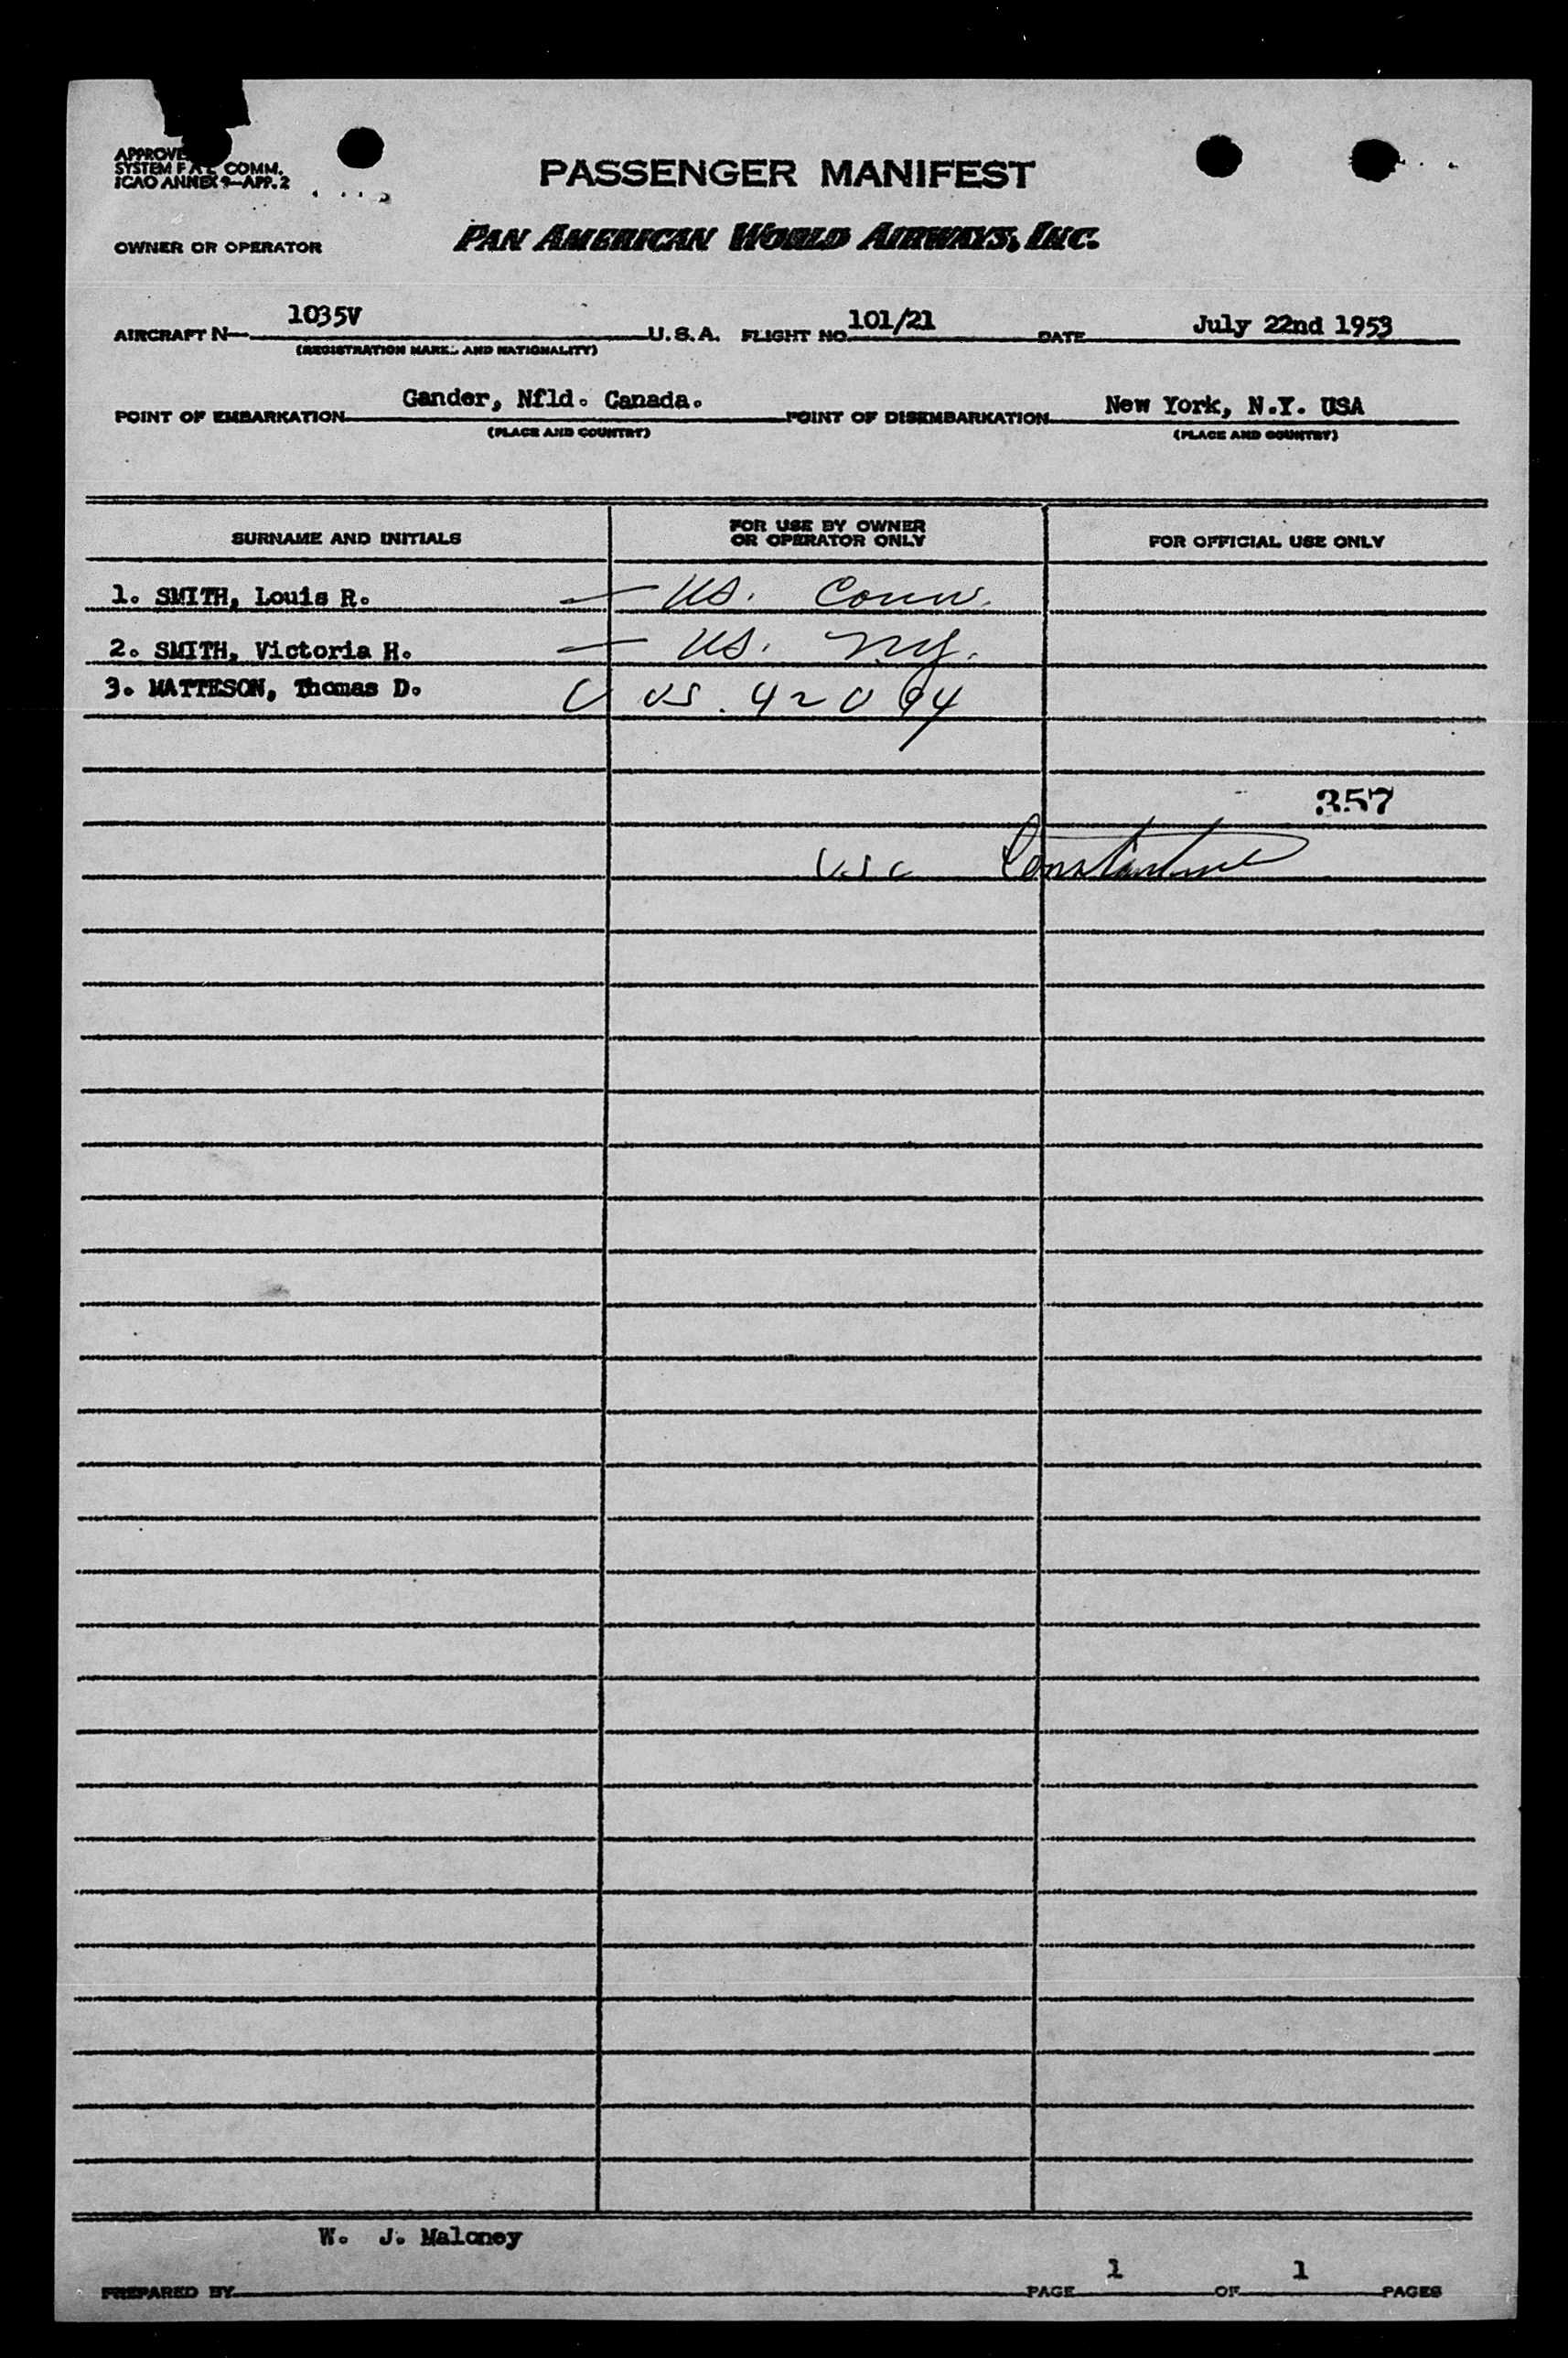 APPROVE
SYSTEM F A L COMM.
ICAO ANNEX 9—APP. 2
PASSENGER MANIFEST
OWNER OR OPERATOR PAN AMERICAN WORLD AIRWAYS, INC.
AIRCRAFT N— 1035V U.S.A. FLIGHT NO. 101/21 DATE July 22nd 1953
(REGISTRATION MARK.. AND NATIONALITY)
POINT OF EMBARKATION Gander, Nfld. Canada. POINT OF DISEMBARKATION New York, N.Y. USA
(PLACE AND COUNTRY) (PLACE AND COUNTRY)
SURNAME AND INITIALS FOR USE BY OWNER OR OPERATOR ONLY FOR OFFICIAL USE ONLY
1. SMITH, Louis R. — US. Conn.
2. SMITH, Victoria H. — US. NY.
3. MATTESON, Thomas D. US. 42094
357
USC Constantine
W. J. Maloney
PREPARED BY PAGE 1 OF 1 PAGES